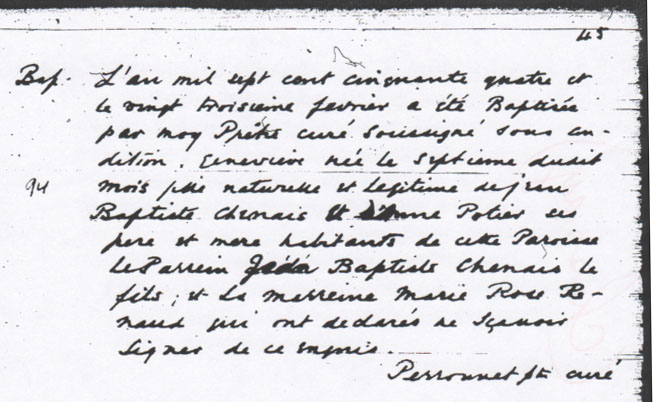 45
Bap. L'an mil sept cent cinquante quatre et
le vingt troisieme fevrier a été Baptisée
par moy Prêtre curé soussigné sous con-
dition, Genevieve née le septieme dudit
94 mois fille naturelle et Legitime de jean
Baptiste Chenais et d'Anne Potier ses
pere et mere habitants de cette Paroisse
Le Parrein Baptiste Chenais le
fils, et La marreine Marie Rose Re-
naud qui ont declarés ne sçavoir
signer de ce enquis.
Perronnet ptr curé